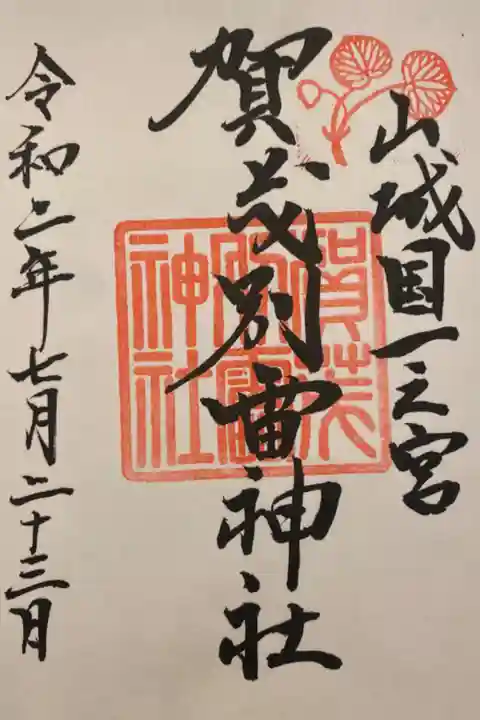 山城国一之宮
賀茂別雷神社
令和二年七月二十三日
賀茂
別雷
神社